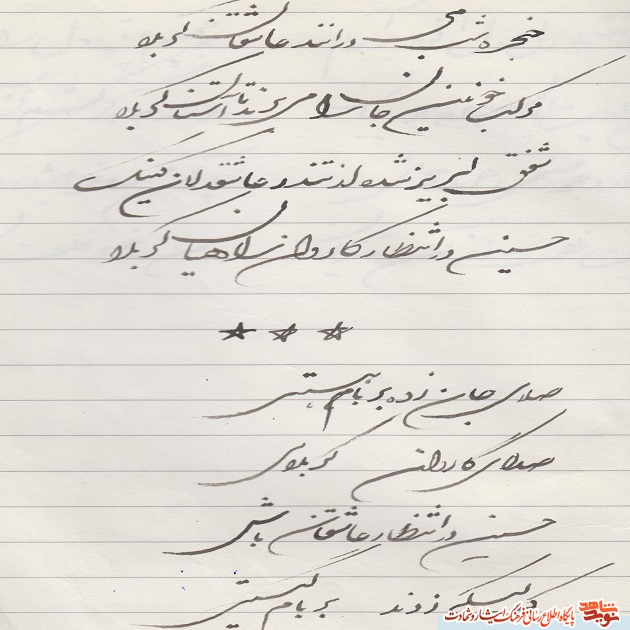 حنجره شب می درانند عاشقان کربلا
مرکب خونین جانان را می برند تا آستان کربلا
شفق لبریز شده از تندر عاشقدلان
حسین در انتظار کاروان راهیان کربلا
صلای جان زده بر بام هستی
صدای کاروان کربلای
حسین در انتظار عاشقان باش
زدند بر بام گیتی
نوید شاهد پایگاه اطلاع رسانی فرهنگ ایثار و شهادت